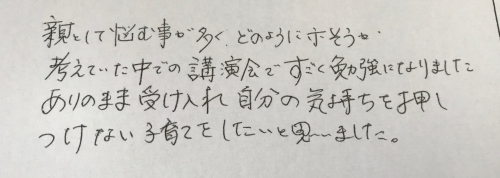 親として悩む事が多く、どのように示そうか
考えていた中での講演会ですごく勉強になりました
ありのまま受け入れ自分の気持ちを押し
つけない子育てをしたいと思いました。